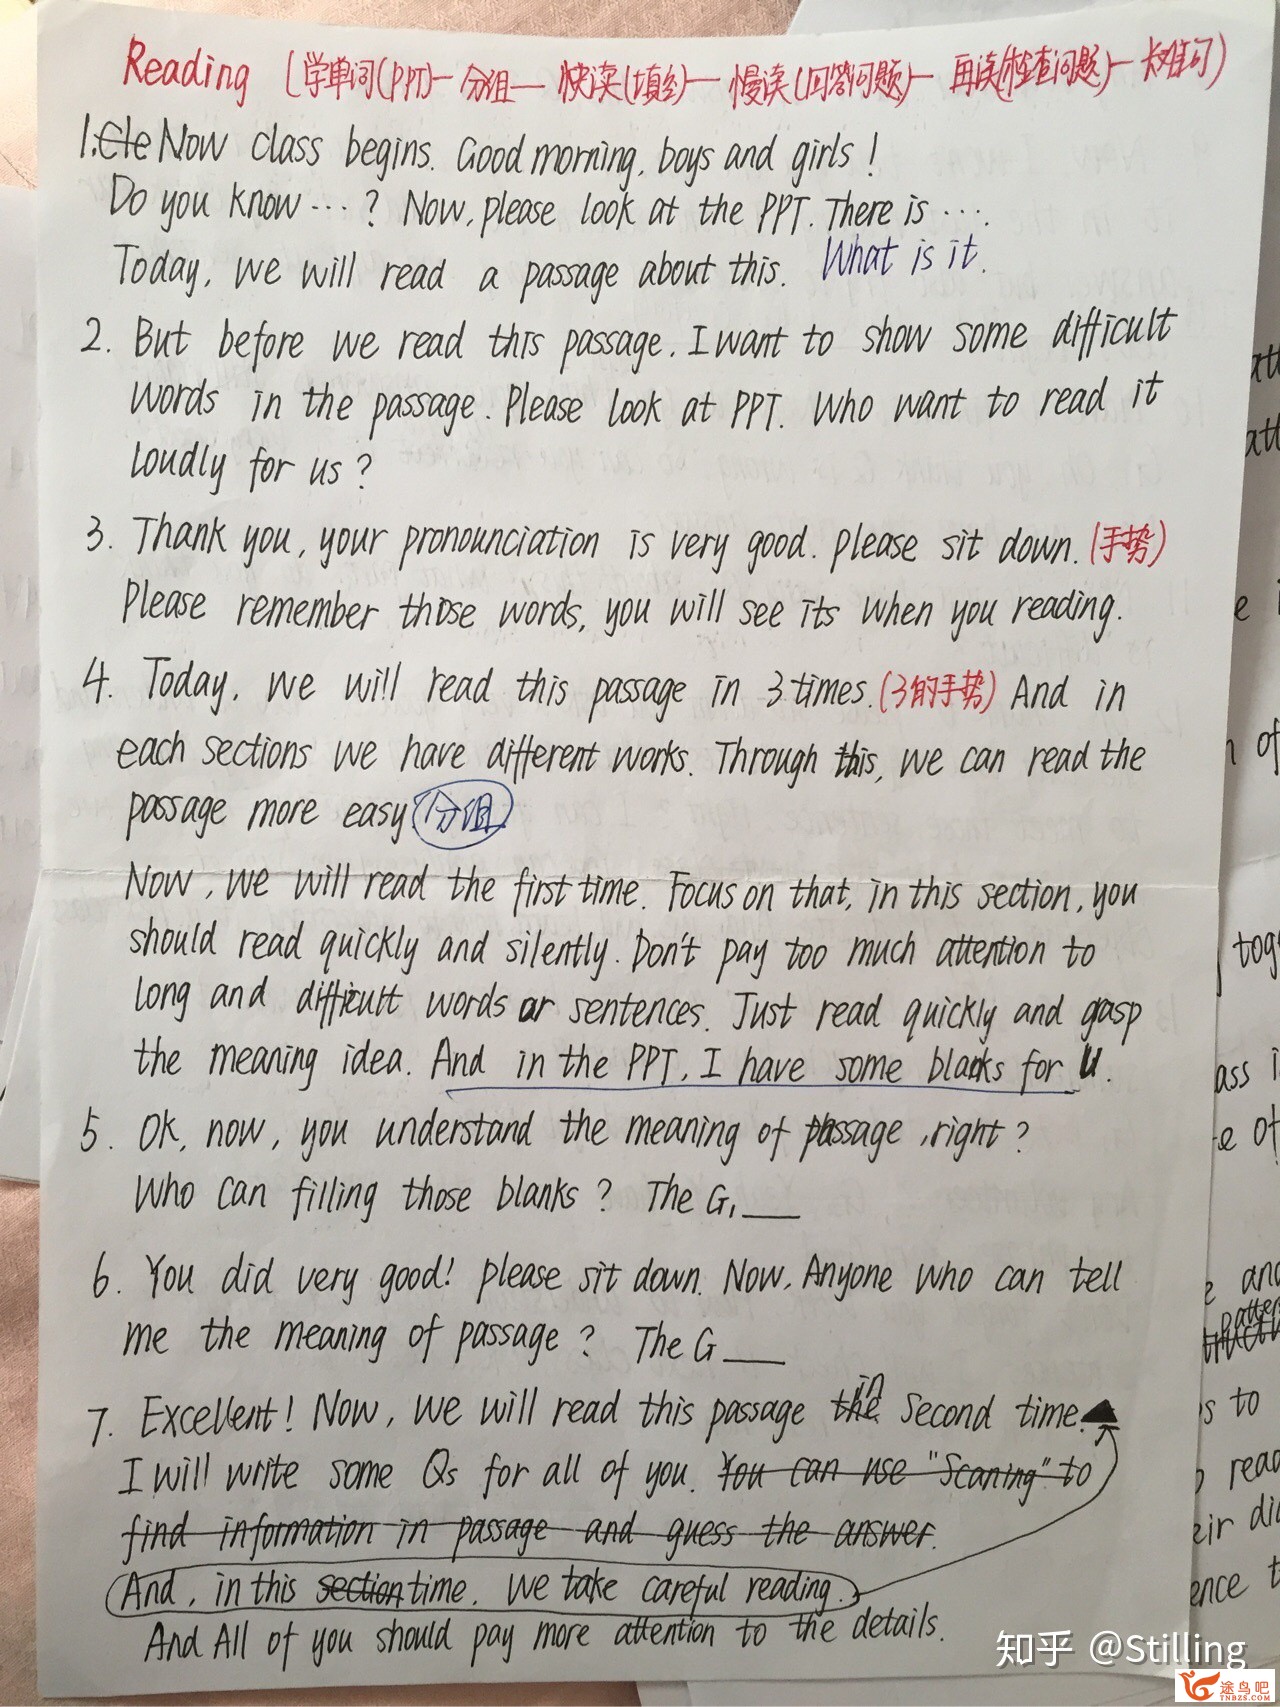 Reading (学单词(PPT)— 分组— 快读(填空)— 慢读(回答问题)— 再读(检查问题)—
1. Cle Now class begins. Good morning, boys and girls!
Do you know ...? Now, please look at the PPT. There is ....
Today, we will read a passage about this. What is it.
2. But before we read this passage. I want to show some difficult
words in the passage. Please look at PPT. Who want to read it
loudly for us?
3. Thank you, your pronounciation is very good. please sit down. (手势)
Please remember those words, you will see its when you reading.
4. Today, we will read this passage in 3 times. (3的手势) And in
each sections we have different works. Through this, we can read the
passage more easy 分组
Now, we will read the first time. Focus on that, in this section, you
should read quickly and silently. Don't pay too much attention to
long and difficult words or sentences. Just read quickly and gasp
the meaning idea. And in the PPT, I have some blanks for u.
5. Ok, now, you understand the meaning of passage, right?
Who can filling those blanks? The G, ___
6. You did very good! please sit down. Now, Anyone who can tell
me the meaning of passage? The G ___
7. Excellent! Now, we will read this passage the in second time.
I will write some Qs for all of you. You can use "Scaning" to
find information in passage and guess the answer.
And, in this section time. We take careful reading.
And All of you should pay more attention to the details.
att
att
e
of
tog
ass i
e of
e and
s to
read
eir di
ence t
知乎 @Stilling
途鸟吧
TNBZS.COM